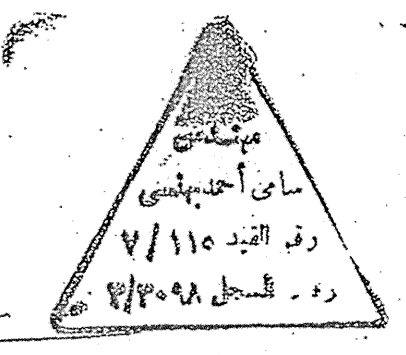 مهندس
سامى أحمد بهنسى
رقم القيد ٧/١١٥
رقم السجل ٣/٣٠٩٨